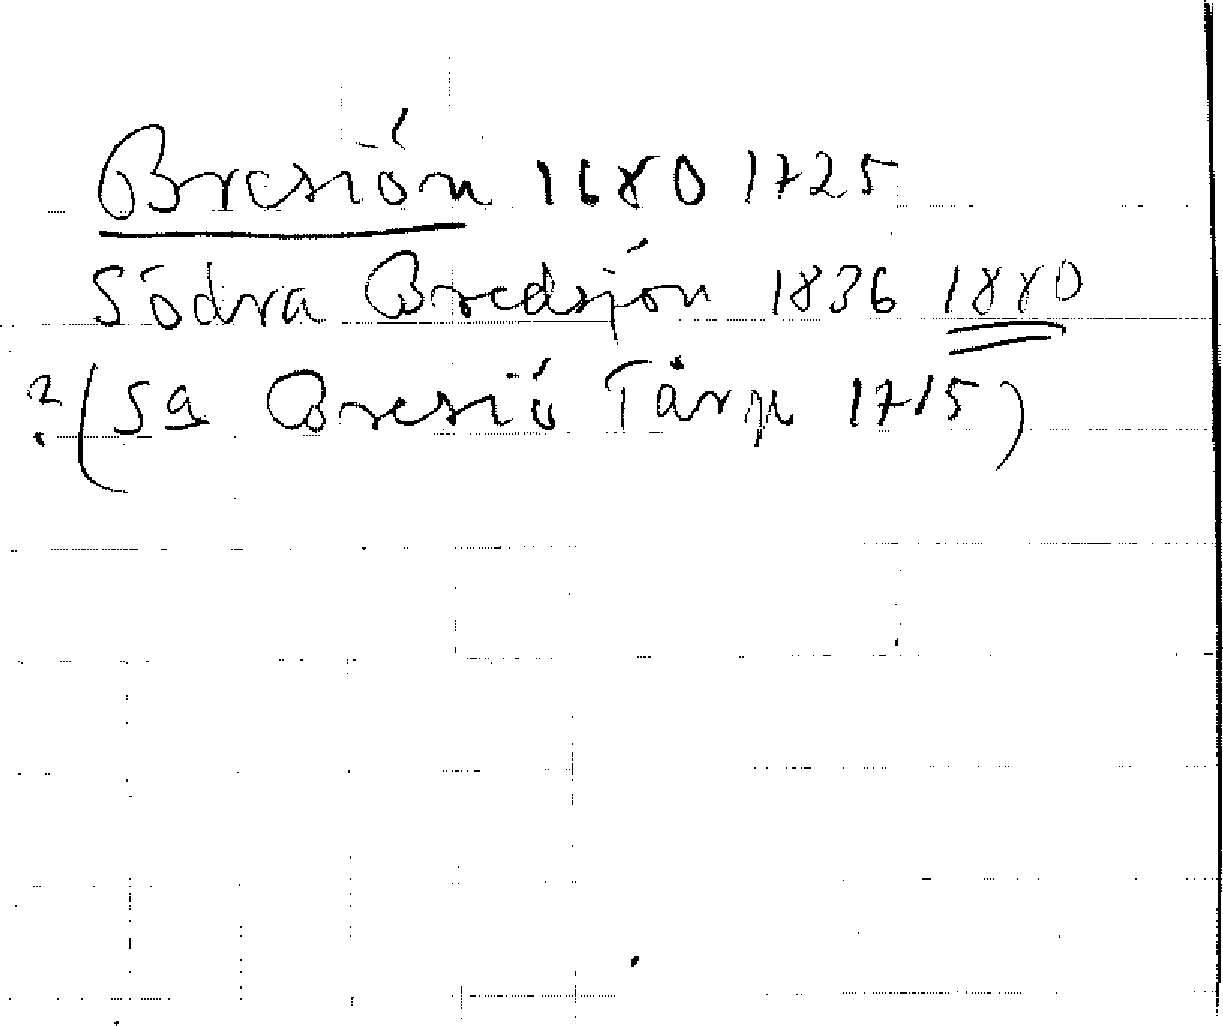 Bresiön 1680 1725
Södra Bredsjön 1836 1880
? (Sa Bresiö Tårp 1715)